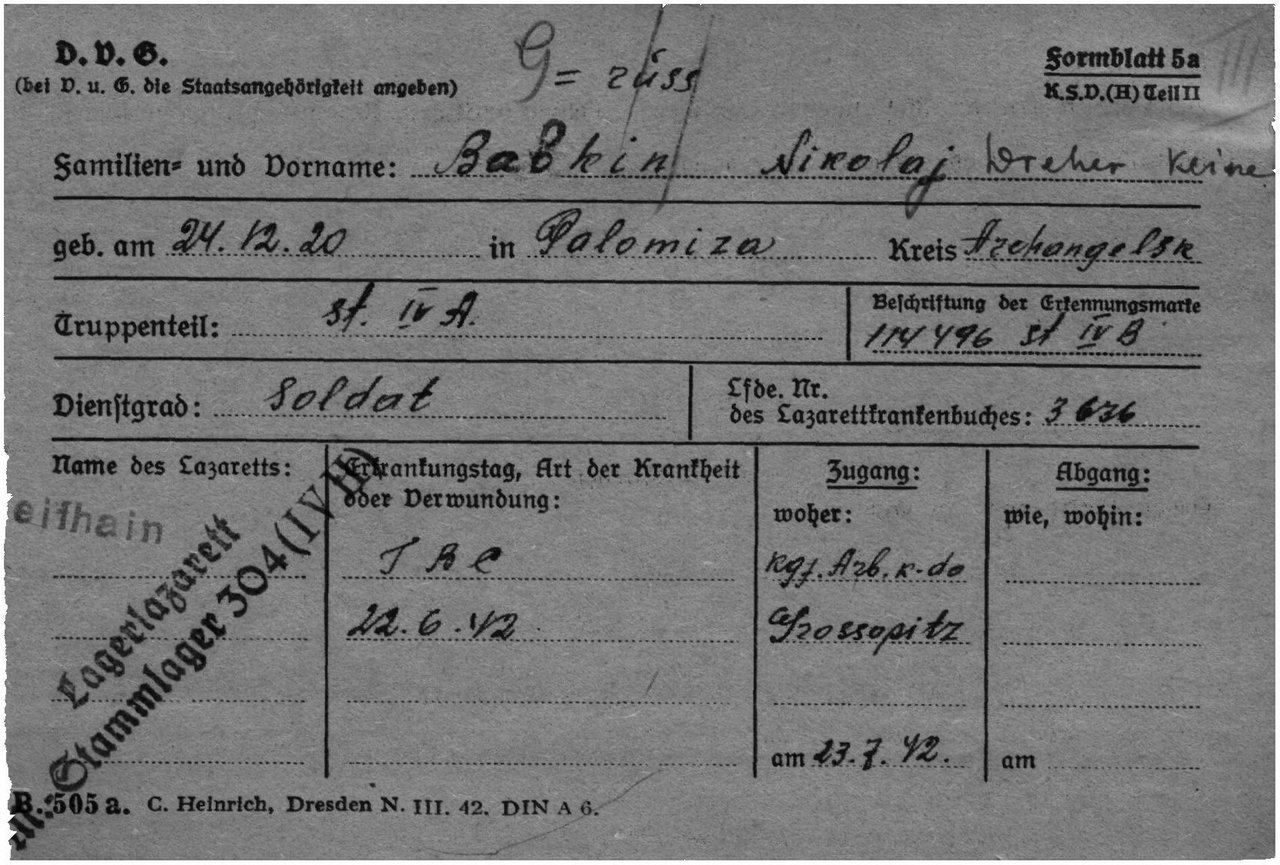 D. V. G.
(bei V. u. G. die Staatsangehörigkeit angeben)
G = russ
Formblatt 5a
K.S.D.(H) Teil II
III
Familien= und Vorname: Babkin Nikolaj Dreher Keine
geb. am 24.12.20 in Palomiza Kreis Archangelsk
Truppenteil: St. IV A.
Beschriftung der Erkennungsmarke
114496 St IV B
Dienstgrad: Soldat
Lfde. Nr.
des Lazarettkrankenbuches: 3636
Name des Lazaretts:
eithain
Lagerlazarett
Stammlager 304 (IV H)
Erkrankungstag, Art der Krankheit
oder Verwundung:
TBC
22.6.42
Zugang:
woher:
Kgf. Arb. K-do
Grossopitz
am 23.7.42.
Abgang:
wie, wohin:
am
B. 505a. C. Heinrich, Dresden N. III. 42. DIN A 6.